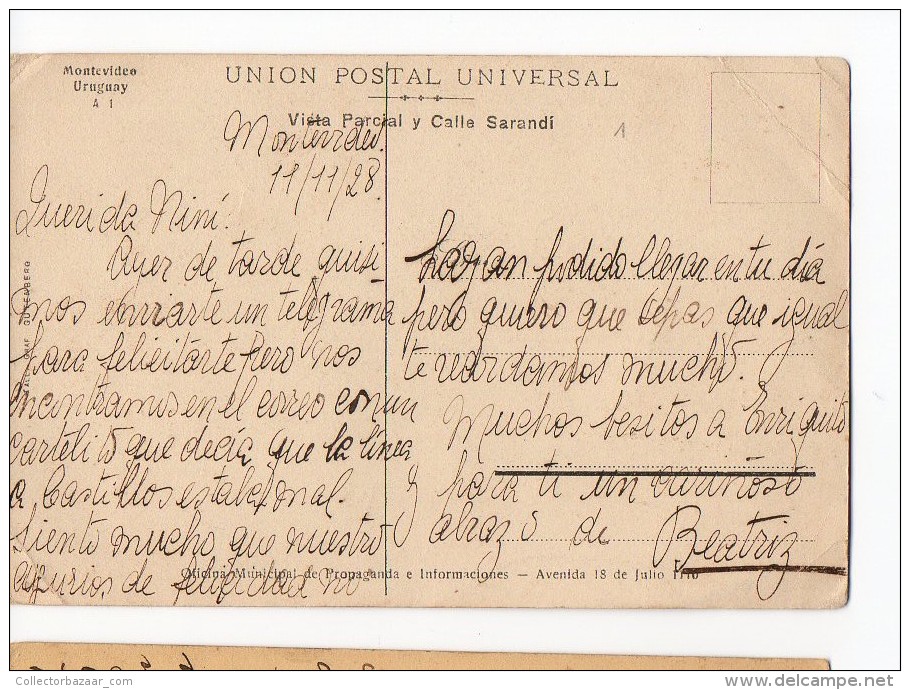 Montevideo
Uruguay
A 1
UNION POSTAL UNIVERSAL
Vista Parcial y Calle Sarandí
1
Montevideo.
11/11/28
Querida Niní:
Ayer de tarde quisi
mos enviarte un telegrama
para felicitarte pero nos
encontramos en el correo con un
cartelito que decía que la línea
a Castillos estaba mal.
Siento mucho que nuestro
augurios de felicidad no
hayan podido llegar en tu día
pero quiero que sepas que igual
te recordamos mucho.
Muchos besitos a Enriquito
y para ti un cariñoso
abrazo de Beatriz
GRAF. GUTENBERG
Oficina Municipal de Propaganda e Informaciones — Avenida 18 de Julio 1110
Collectorbazaar_com
delcampe.net